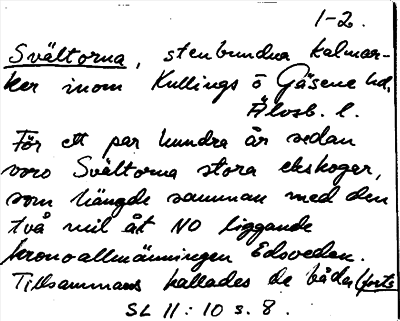 1-2.
Svältorna, stenbundna kalmar-
ker inom Kullings o Gäsene hd,
Älvsb. l.
För ett par hundra år sedan
voro Svältorna stora ekskogar,
som hängde samman med den
två mil åt NO liggande
kronoallmänningen Edsveden.
Tillsammans kallades de båda (forts
SL 11:10 s. 8.